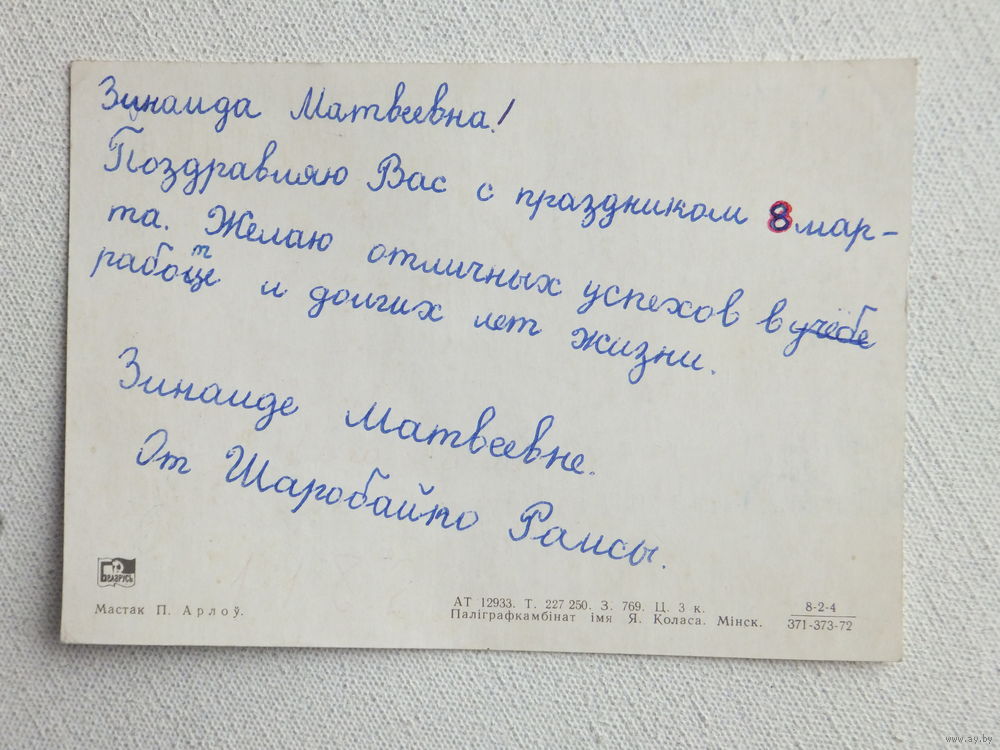 Зинаида Матвеевна!
Поздравляю Вас с праздником 8 мар-
та. Желаю отличных успехов в учёбе
работе и долгих лет жизни.
Зинаиде Матвеевне.
От Шаробайко Раисы.
БЕЛАРУСЬ
Мастак П. Арлоў.
АТ 12933. Т. 227 250. З. 769. Ц. 3 к.
Паліграфкамбінат імя Я. Коласа. Мінск.
8-2-4
371-373-72
www.ay.by